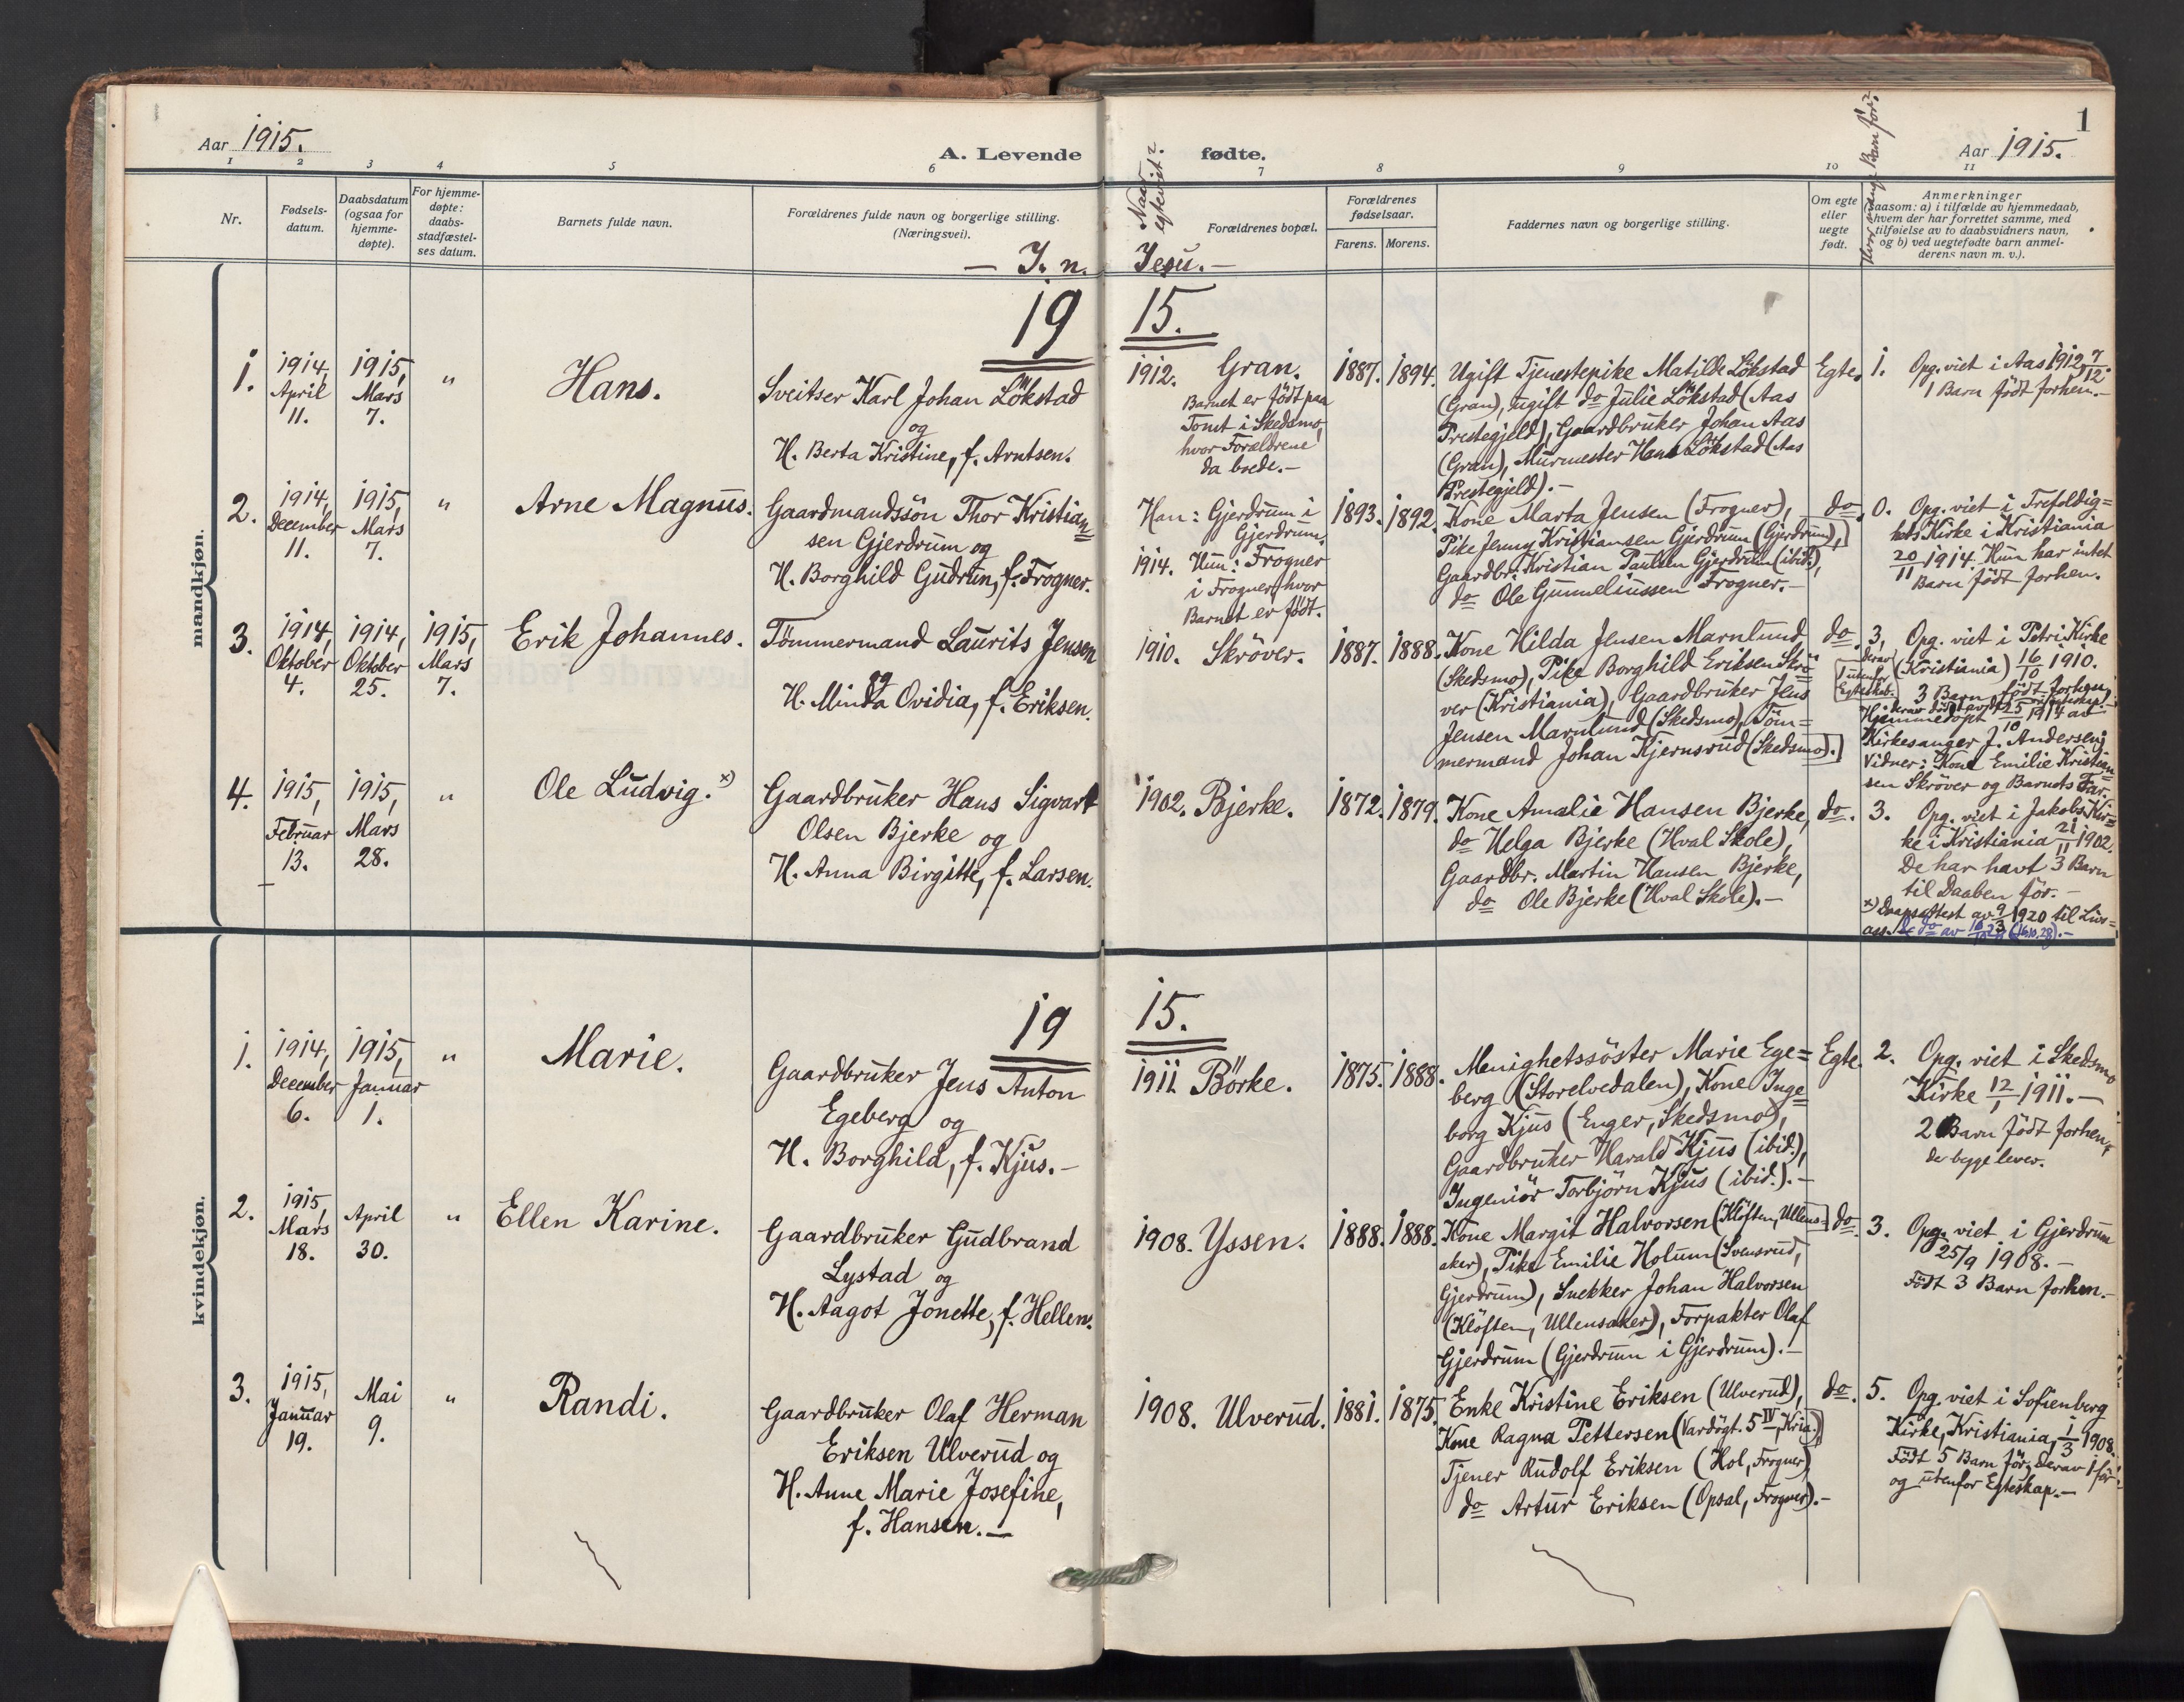 1
Aar 1915.
A. Levende fødte.
Aar 1915.
1 2 3 4 5 6 7 8 9 10 11
Nr.
Fødsels-
datum.
Daabsdatum
(ogsaa for
hjemme-
døpte).
For hjemme-
døpte:
daabs-
stadfæstel-
ses datum.
Barnets fulde navn.
Forældrenes fulde navn og borgerlige stilling.
(Næringsvei).
Naar
egteviet?
Forældrenes bopæl.
Forældrenes
fødselsaar.
Farens. Morens.
Faddernes navn og borgerlige stilling.
Om egte
eller
uegte
født.
Hvor mange Barn før?
Anmerkninger
saasom: a) i tilfælde av hjemmedaab,
hvem der har forrettet samme, med
tilføielse av to daabsvidners navn,
og b) ved uegtefødte barn anmel-
derens navn m. v.).
— J. n. Jesu. —
mandkjøn.
19 15.
1.
1914,
April
11.
1915,
Mars
7.
"
Hans.
Sveitser Karl Johan Lökstad
og
H. Berta Kristine, f. Arntsen.
1912. Gran.
Barnet er födt paa
Tomt i Skedsmo,
hvor Forældrene
da boede. —
1887. 1894.
Ugift Tjenestepike Matilde Lökstad
(Gran), ugift do Julie Lökstad (Aas
Prestegjeld), Gaardbruker Johan Aas
(Gran), Murmester Hans Lökstad (Aas
Prestegjeld). —
Egte.
1. Opg. viet i Aas 1912, 7/12.
1 Barn födt forhen. —
2.
1914,
December
11.
1915,
Mars
7.
"
Arne Magnus.
Gaardmandssön Thor Kristian=
sen Gjerdrum og
H. Borghild Gudrun, f. Frogner.
Han: Gjerdrum i
Gjerdrum.
1914. Hun: Frogner
i Frogner, hvor
Barnet er födt.
1893. 1892.
Kone Marta Jensen (Frogner),
Pike Jenny Kristiansen Gjerdrum (Gjerdrum),
Gaardbr. Kristian Paulsen Gjerdrum (ibid.),
do Ole Gunneliussen Frogner. —
do.
0. Opg. viet i Trefoldig=
hets Kirke i Kristiania
20/11 1914. Hun har intet
Barn födt forhen.
3.
1914,
Oktober
4.
1914,
Oktober
25.
1915,
Mars
7.
Erik Johannes.
Tömmermand Laurits Jensen
og
H. Minda Ovidia, f. Eriksen.
1910. Skröver.
1887. 1888.
Kone Hilda Jensen Marnlund
(Skedsmo), Pike Borghild Eriksen Skrö=
ver (Kristiania), Gaardbruker Jens
Jensen Marnlund (Skedsmo), Töm=
mermand Johan Kjernsrud (Skedsmo).
do.
3,
derav
1 utenfor
Egteskab.
Opg. viet i Petri Kirke
(Kristiania) 16/10 1910.
3 Barn födt forhen,
Hjemmedöpt 25/10 1914 av
Kirkesanger J. Andersen;
Vidner: Kone Emilie Kristian=
sen Skröver og Barnets Far.
4.
1915,
Februar
13.
1915,
Mars
28.
"
Ole Ludvig. x)
Gaardbruker Hans Sigvart
Olsen Bjerke og
H. Anna Birgitte, f. Larsen.
1902. Bjerke.
1872. 1879.
Kone Amalie Hansen Bjerke,
do Helga Bjerke (Hval Skole),
Gaardbr. Martin Hansen Bjerke,
do Ole Bjerke (Hval Skole). —
do.
3. Opg. viet i Jakobs Kir=
ke i Kristiania 21/11 1902.
De har havt 3 Barn
til Daaben för. —
x) Daapsattest av 9/3 1920 til Livs=
ass.
kvindekjøn.
19 15.
1.
1914,
December
6.
1915,
Januar
1.
"
Marie.
Gaardbruker Jens Anton
Egeberg og
H. Borghild, f. Kjus. —
1911. Börke.
1875. 1888.
Menighetssöster Marie Ege=
berg (Storelvedalen), Kone Inge=
borg Kjus (Enger, Skedsmo),
Gaardbruker Harald Kjus (ibid.),
Ingeniör Torbjörn Kjus (ibid.). —
Egte.
2. Opg. viet i Skedsmo
Kirke 12/1 1911. —
2 Barn födt forhen,
de begge lever.
2.
1915,
Mars
18.
April
30.
"
Ellen Karine.
Gaardbruker Gudbrand
Lystad og
H. Aagot Jonette, f. Hellen.
1908. Yssen.
1888. 1888.
Kone Margit Halvorsen (Klöften, Ullens=
aker), Pike Emilie Holum (Svensrud,
Gjerdrum), Snekker Johan Halvorsen
(Klöften, Ullensaker), Forpakter Olaf
Gjerdrum (Gjerdrum i Gjerdrum). —
do.
3. Opg. viet i Gjerdrum
25/9 1908. —
Födt 3 Barn forhen. —
3.
1915,
Januar
19.
Mai
9.
"
Randi.
Gaardbruker Olaf Herman
Eriksen Ulverud og
H. Anne Marie Josefine,
f. Hansen. —
1908. Ulverud.
1881. 1875.
Enke Kristine Eriksen (Ulverud),
Kone Ragna Pettersen (Vardögt. 5 IV, Kria.)
Tjener Rudolf Eriksen (Hol, Frogner),
do Artur Eriksen (Opsal, Frogner). —
do.
5. Opg. viet i Sofienberg
Kirke, Kristiania, 1/3 1908.
Födt 5 Barn för, derav 1 för
og utenfor Egteskap. —